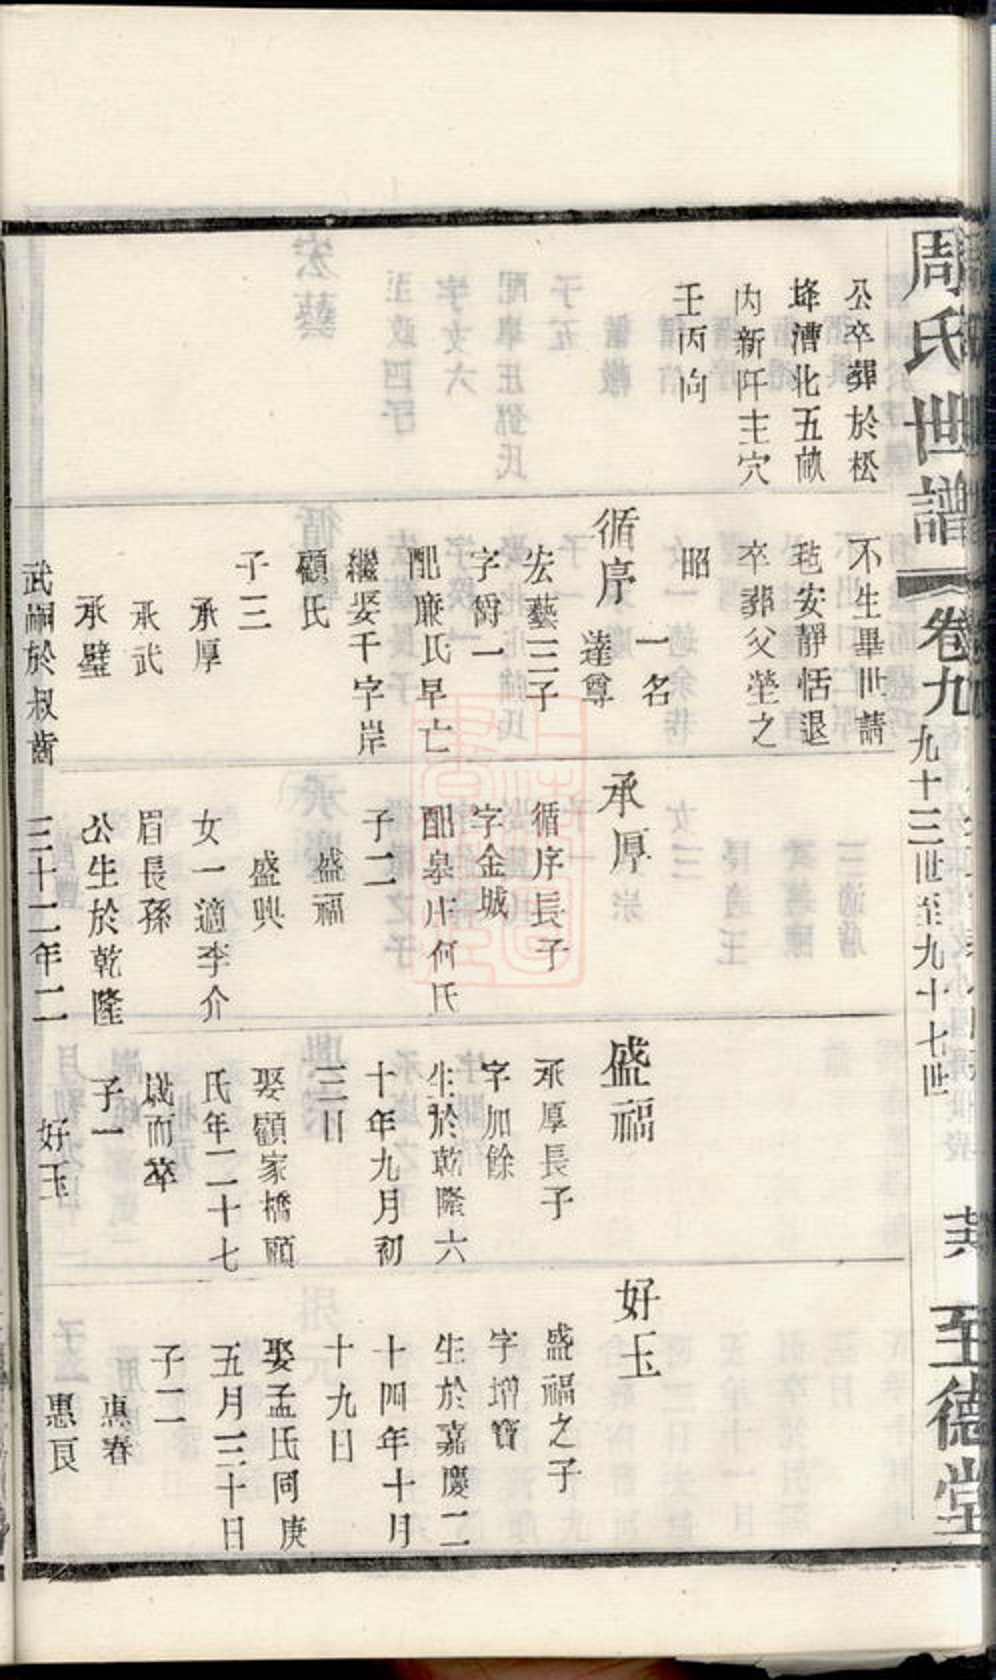 周氏世譜
卷九
九十三世至九十七世
至德堂
公卒葬於松
埄漕北五畝
內新阡主穴
壬丙向
不生畢世請
卒葬父塋之
昭
循序
一名
達尊
宏藝三子
字爵一
配廉氏早亡
繼娶千字岸
顧氏
子三
承厚
承武
承璧
武嗣於叔
承厚
循序長子
字金城
配皋庄何氏
子二
盛福
盛興
女一適李介
眉長孫
公生於乾隆
三十二年二
盛福
承厚長子
字加餘
生於乾隆六
十年九月初
三日
娶顧家橋顧
氏年二十七
歲而卒
子一
好玉
好玉
盛福之子
字增寶
生於嘉慶二
十四年十月
十九日
娶孟氏同庚
五月三十日
子二
惠春
惠良